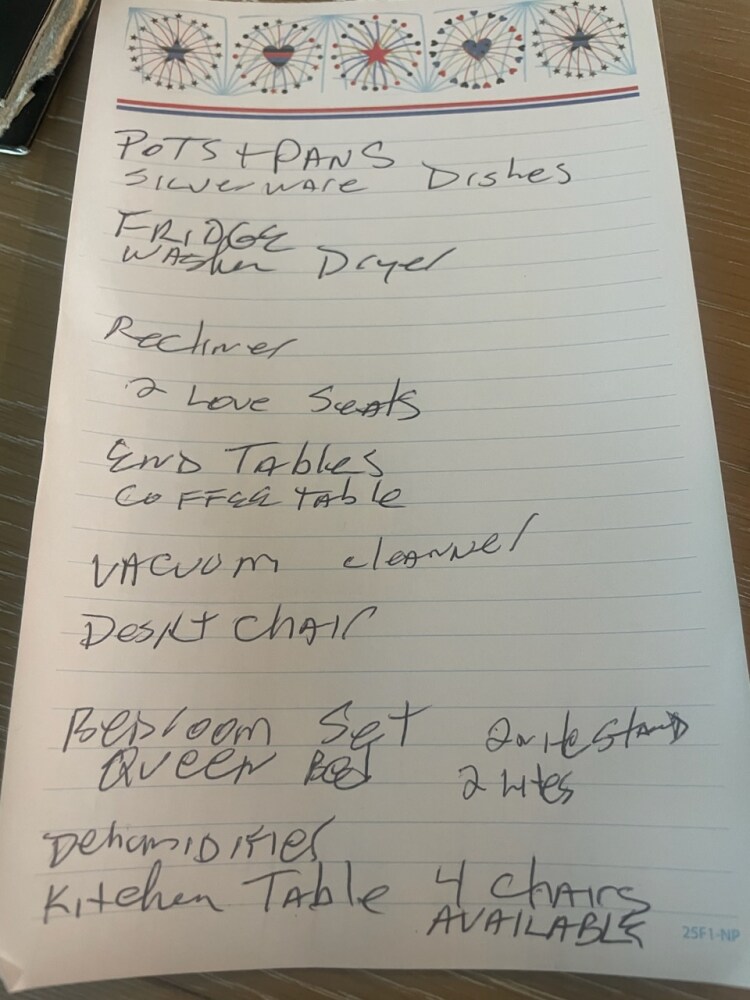 POTS + PANS
SILVERWARE Dishes
FRIDGE
WASher Dryer
Recliner
2 Love Seats
END TAbles
COFFEE TAble
VACUUM cleANNer
Desk + ChAIr
BeDroom Set 2 nite StanD
Queen Bed 2 Lites
DehumIDIfier
Kitchen TAble 4 ChAIrs
AVAILABLE
25F1-NP